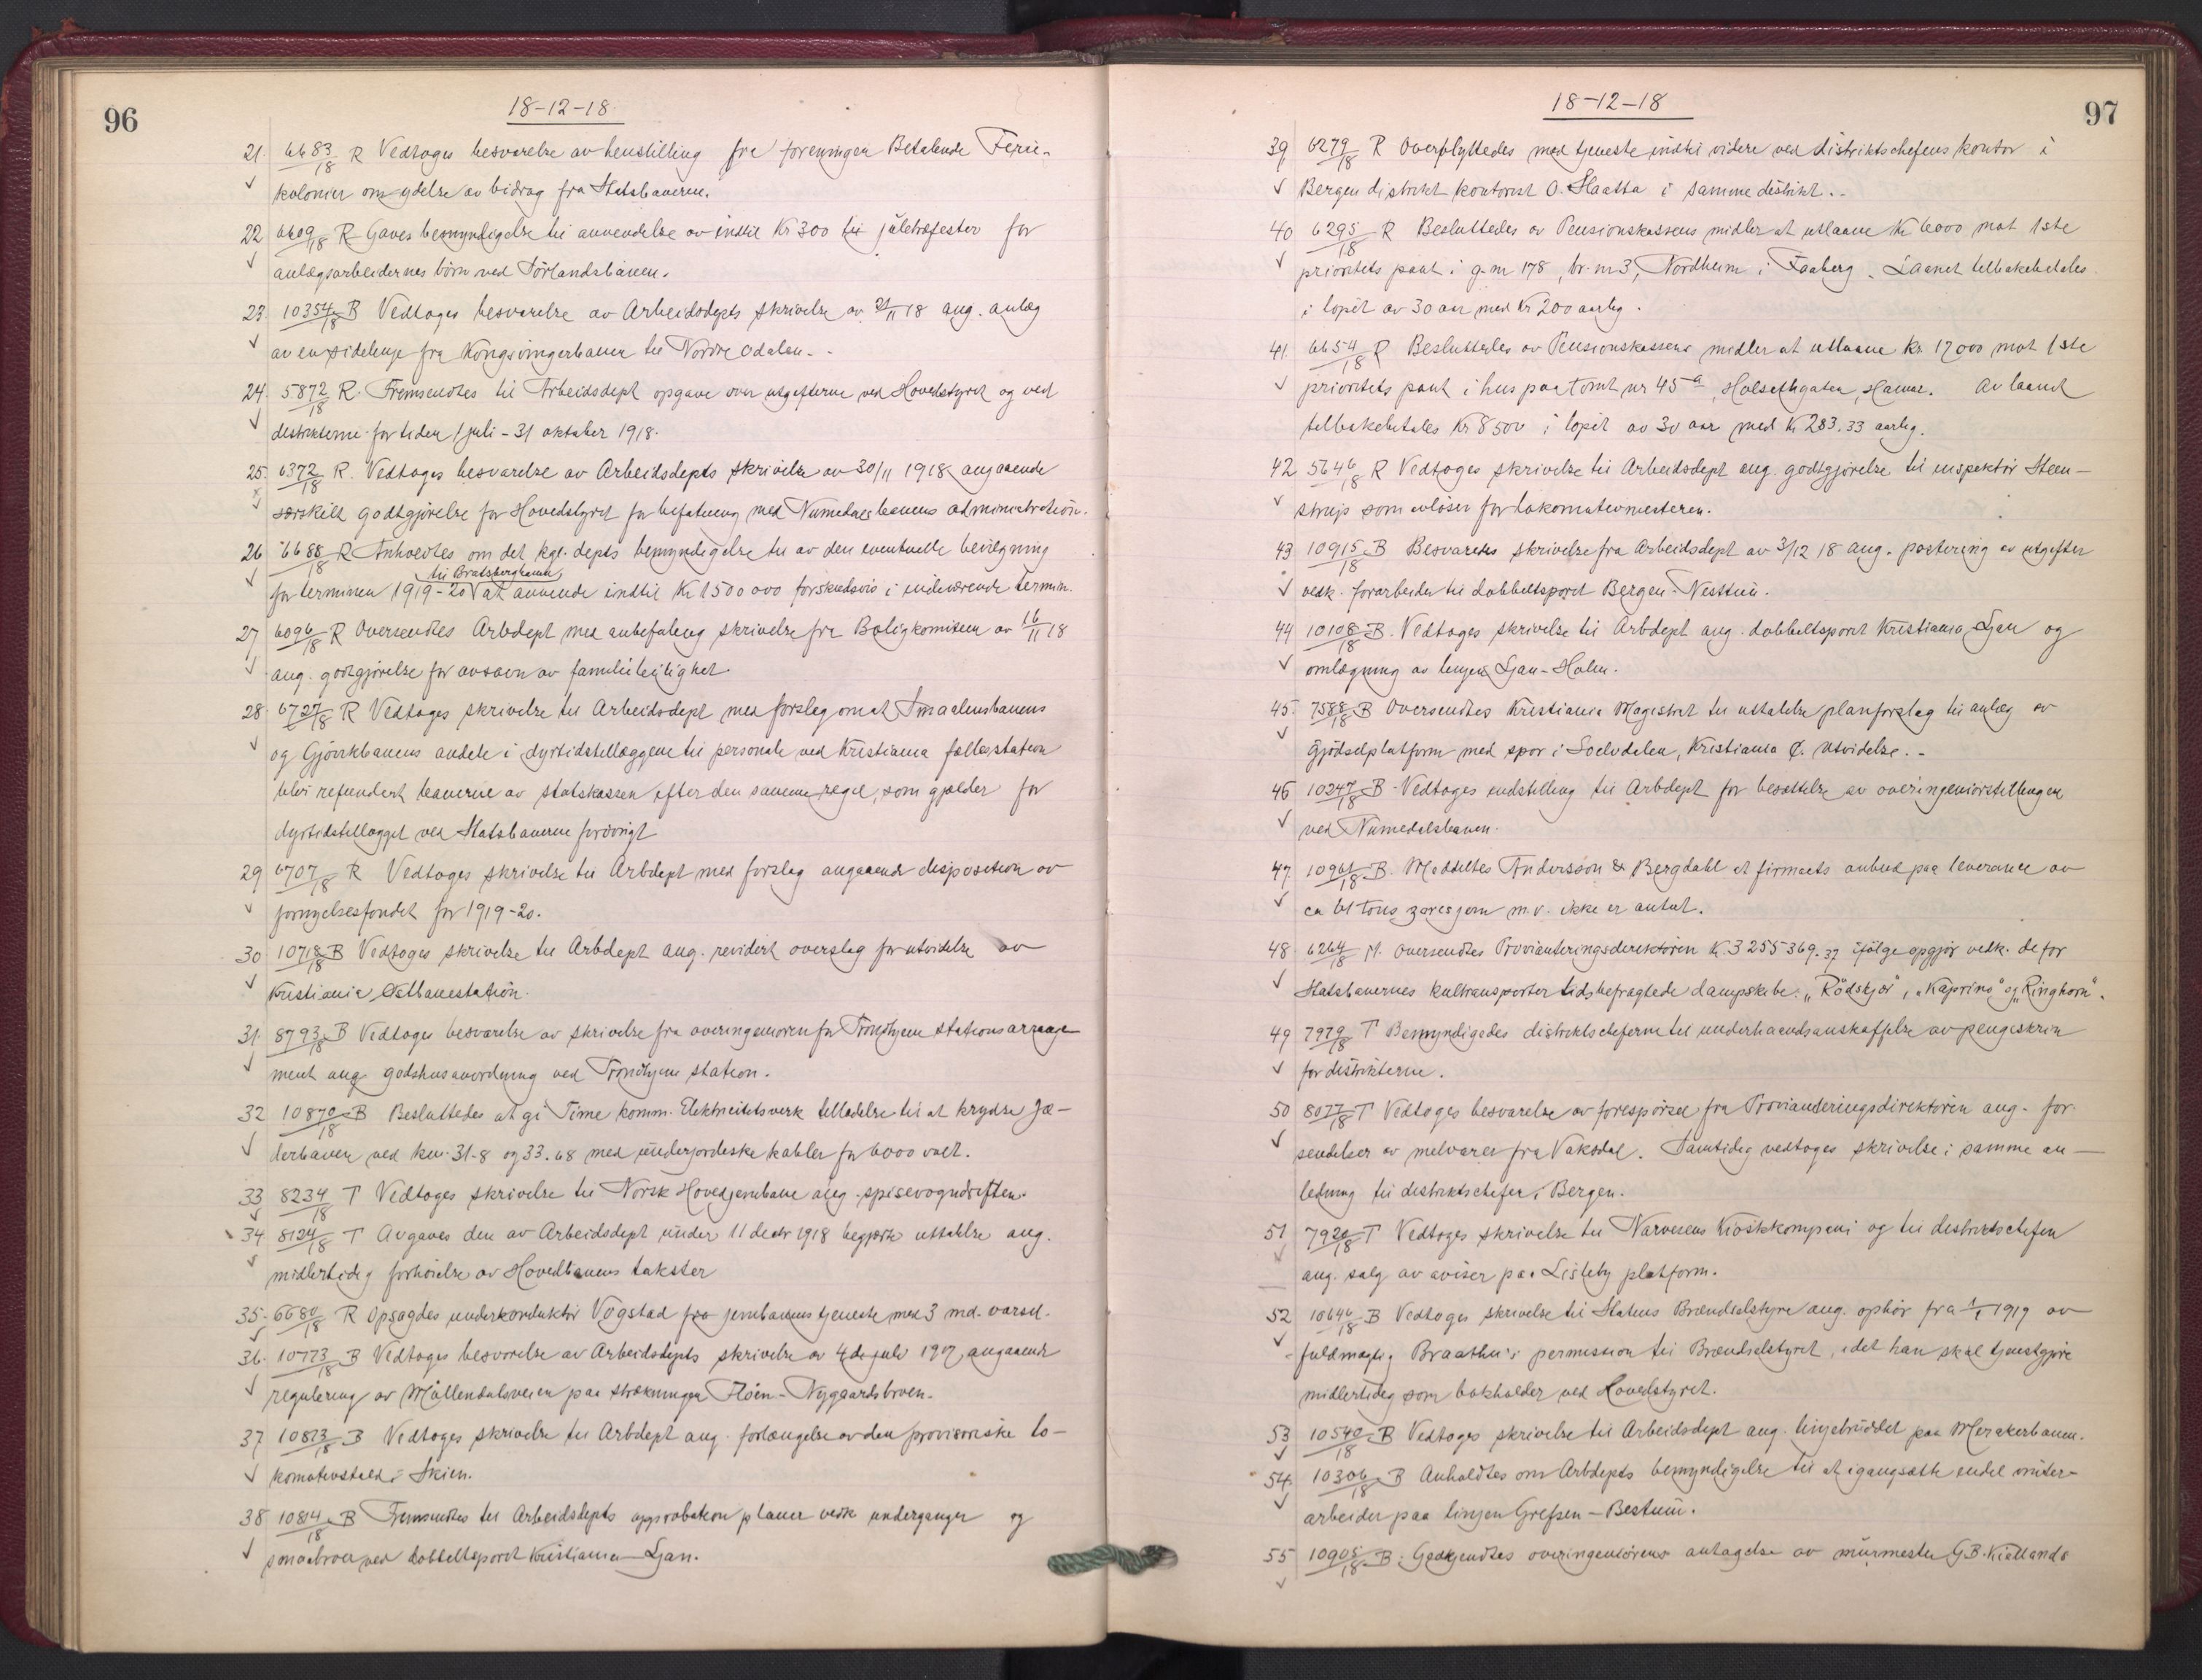 96
18-12-18
21. 6683/18 R Vedtoges besvarelse av henstilling fra foreningen Betalende Ferie-
kolonier om ydelse av bidrag fra Statsbanerne.
22 6609/18 R Gaves bemyndigelse til anvendelse av indtil Kr 300 til juletræfester for
anlægsarbeidernes börn ved Sörlandsbanen.
23. 10354/18 B Vedtoges besvarelse av Arbeidsdepts skrivelse av 21/11 18 ang. anlæg
av en sidelinje fra Kongsvingerbanen til Nordre Odalen.-
24. 5872/18 R. Fremsendtes til Arbeidsdept opgave over utgifterne ved Hovedstyret og ved
distrikterne for tiden 1 juli - 31 oktober 1918.
25. 6372/18 R. Vedtoges besvarelse av Arbeidsdepts skrivelse av 30/11 1918 angaaende
særskilt godtgjörelse for Hovedstyret for befatning med Numedalsbanens administration.
26 6688/18 R Anholdtes om det kgl. depts bemyndigelse til av den eventuelle bevilgning
for terminen 1919-20 til Bratsbergbanen at anvende indtil Kr 1500 000 forskudsvis i indeværende termin.
27 6096/18 R Oversendtes Arbdept med anbefaling skrivelse fra Boligkomiteen av 16/11 18
ang. godtgjörelse for avsavn av familieleilighet
28. 6727/18 R Vedtoges skrivelse til Arbeidsdept med forslag om at Smaalensbanens
og Gjövikbanens andele i dyrtidstillæggene til personale ved Kristiania fællesstation
blir refundert banerne av statskassen efter den samme regel, som gjælder for
dyrtidstillægget ved Statsbanerne forövrigt
29 6707/18 R Vedtoges skrivelse til Arbdept med forslag angaaende disposition av
fornyelsesfondet for 1919-20.
30 10718/18 B Vedtoges skrivelse til Arbdept ang. revidert overslag for utvidelse av
Kristiania Östbanestation.
31. 8793/18 B Vedtoges besvarelse av skrivelse fra overingeniören for Trondhjem stationsarrange-
ment ang godshusanordning ved Trondhjem station.
32 10870/18 B Besluttedes at gi Time komm. Elektricitetsverk tilladelse til at krydse Jæ-
derbanen ved km. 31.8 og 33.68 med underjordiske kabler for 6000 volt.
33 8234/18 T Vedtoges skrivelse til Norsk Hovedjernbane ang. spisevogndriften.
34 8124/18 T Avgaves den av Arbeidsdept under 11 decbr 1918 begjærte uttalelse ang.
midlertidig forhöielse av Hovedbanens takster
35. 6680/18 R Opsagdes underkonduktör Vogstad fra jernbanens tjeneste med 3 md. varsel.
36. 10773/18 B Vedtoges besvarelse av Arbeidsdepts skrivelse av 4de juli 1917, angaaende
regulering av Möllendalsveien paa strækningen Flöen - Nygaardsbroen.
37 10823/18 B Vedtoges skrivelse til Arbdept ang. forlængelse av den provisoriske lo-
komotivstald i Skien.
38 10814/18 B Fremsendtes til Arbeidsdepts approbation planer vedk underganger og
smaabroer ved dobbeltsporet Kristiania - Ljan.
97
18-12-18
39 6279/18 R Overflyttedes med tjeneste indtil videre ved distriktschefens kontor i
Bergen distrikt kontorist O. Slaatta i samme distrikt.-
40 6295/18 R Besluttedes av Pensionskassens midler at utlaane Kr 6000 mot 1ste
prioritets pant i g.nr 178, br.nr 3, Nordheim i Faaberg. Laanet tilbakebetales
i löpet av 30 aar med Kr 200 aarlig.
41. 6654/18 R Besluttedes av Pensionskassens midler at utlaane Kr. 17000 mot 1ste
prioritets pant i hus paa tomt nr 45a, Holsethgaten, Hamar. Av laanet
tilbakebetales Kr 8500 i löpet av 30 aar med Kr 283.33 aarlig.
42 5646/18 R Vedtoges skrivelse til Arbeidsdept ang. godtgjörelse til inspektör Steen-
strup som avlöser for lokomotivmesteren.
43 10915/18 B Besvaredes skrivelse fra Arbeidsdept av 3/12 18 ang. postering av utgifter
vedk. forarbeider til dobbeltsporet Bergen - Nesttun.
44 10108/18 B. Vedtoges skrivelse til Arbdept ang. dobbeltsporet Kristiania Ljan og
omlægning av linjen Ljan - Holm.
45. 7588/18 B Oversendtes Kristiania Magistrat til uttalelse planforslag til anlæg av
gjödselplatform med spor i Loelvdalen, Kristiania Ø. utvidelse.-
46 10247/18 B Vedtoges indstilling til Arbdept for besættelse av overingeniörstillingen
ved Numedalsbanen.
47. 10961/18 B. Meddeltes Andersson & Bergdahl at firmaets anbud paa leverance av
ca 61 tons zoresjern m.v. ikke er antat.
48. 6264/18 M. Oversendtes Provianteringsdirektören Kr. 3 255 369.37 ifölge opgjör vedk. de for
Statsbanernes kultransporter tidsbefragtede dampskibe: „Rödskjær", „Kaprino" og „Ringhorn".
49 7979/18 T Bemyndigedes distriktscheferne til underhaandsanskaffelse av pengeskrin
for distrikterne.
50 8077/18 T Vedtoges besvarelse av forespörsel fra Provianteringsdirektören ang. for-
sendelser av melvarer fra Vaksdal. Samtidig vedtoges skrivelse i samme an-
ledning til distriktschefen i Bergen.
51 7920/18 T Vedtoges skrivelse til Narvesens Kioskkompani og til distriktschefen
ang. salg av aviser paa Lisleby platform.
52 10644/18 B Vedtoges skrivelse til Statens Brændselstyre ang. ophör fra 1/1 1919 av
fuldmægtig Braathen's permission til Brændselstyret, idet han skal tjenestgjöre
midlertidig som bokholder ved Hovedstyret.
53 10540/18 B Vedtoges skrivelse til Arbeidsdept ang. linjebruddet paa Merakerbanen.
54. 10306/18 B Anholdtes om Arbdepts bemyndigelse til at igangsætte endel vinter-
arbeider paa linjen Grefsen - Bestun.
55 10905/18 B. Godkjendtes overingeniörens antagelse av murmester G.B. Kiellands